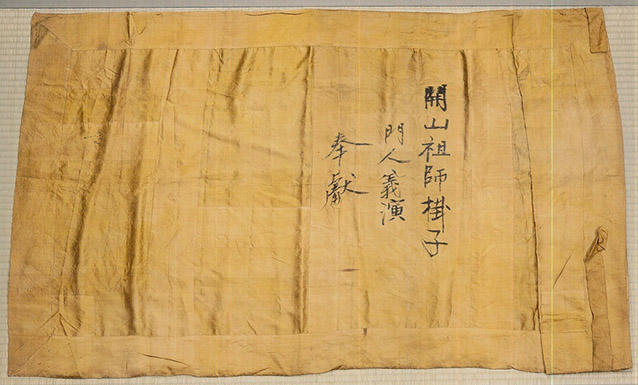 開山祖師掛子
門人義演
奉獻